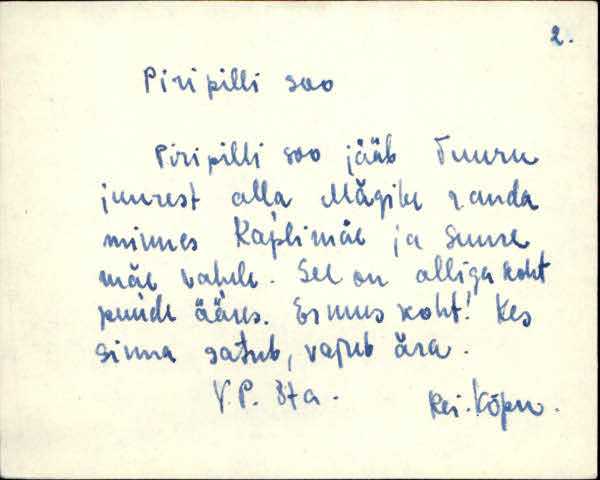 2.
Piripilli soo
Piripilli soo jääb Tuuru
juurest alla Mägipe randa
minnes Kaplimäe ja Suure
mäe vahele. See on alliga koht
puude ääres. Esmus koht! Kes
sinna satub, vajub ära.
V.P. 37a.
Rei. Kõpu.